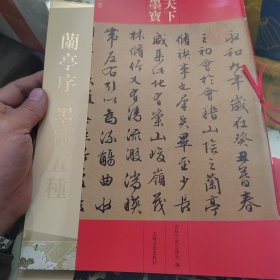 天下
墨寶
永和九年歲在癸丑暮春
之初會于會稽山陰之蘭亭
脩稧事也群賢畢至少長
咸集此地有崇山峻嶺茂
林脩竹又有清流激湍暎
帶左右引以為流觴曲水
吉林文史出版社
蘭亭序
墨跡五種